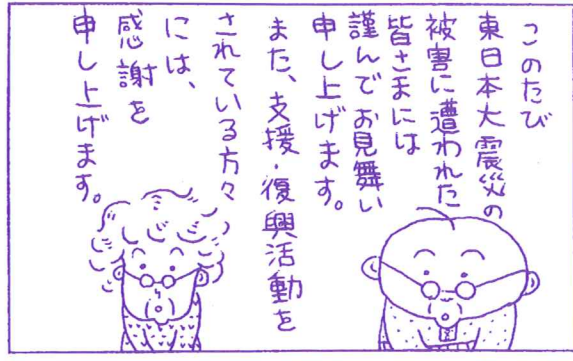 このたび
東日本大震災の
被害に遭われた
皆さまには
謹んでお見舞い
申し上げます。
また、支援・復興活動を
されている方々
には、
感謝を
申し上げます。